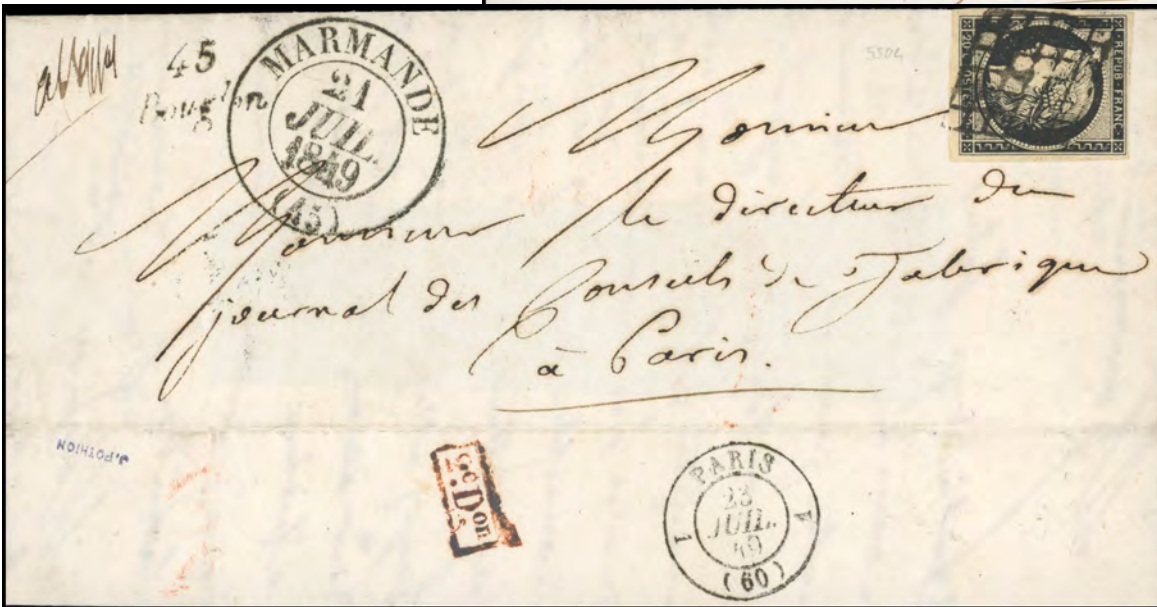 45
MARMANDE
21
JUIL.
1849
(45)
5304
REPUB. FRANC
Monsieur
Monsieur le directeur du
journal des Conseils de fabrique
à Paris.
J. POTHION
2e Don
PARIS
23
JUIL.
49
(60)
1